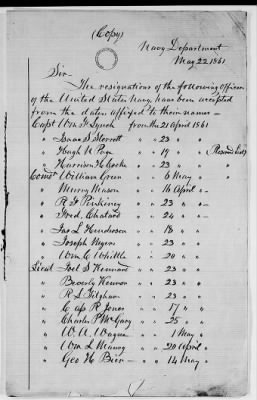 (Copy)
Navy Department
May 22 1861
Sir
The resignations of the following officers
of the United States Navy, have been accepted
from the dates affixed to their names
Capt Wm F Lynch from the 21 April 1861
" Isaac S Sterrett " " 23 " "
" Hugh N Page " " 19 " " (Reserved List)
" Harrison H Cocke " " 23 " "
Comdr William Green " 6 May " "
" Murry Mason " 16 April " "
" R F Pinkney " 23 " "
" Fred. Chatard " 24 " "
" Jas L Henderson " 18 " "
" Joseph Myers " 23 " "
" Wm C Whittle " 20 " "
Lieut Joel S Kennard " 23 " "
" Beverly Kennon " 23 " "
" R L Tilghman " 23 " "
" C ap R Jones " 17 " "
" Charles P McGary " 25 " "
" W. A. Wayne " 1 May "
" Wm L Maury " 20 April "
" Geo H Bier " 14 May "